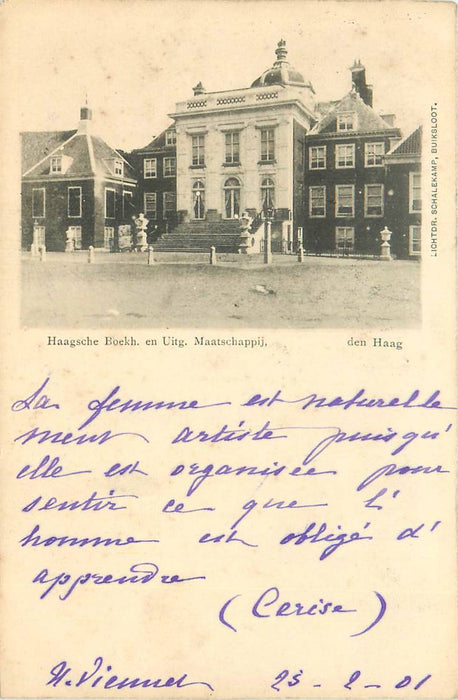 LICHTDR. SCHALEKAMP, BUIKSLOOT.
Haagsche Boekh. en Uitg. Maatschappij, den Haag
La femme est naturelle
ment artiste puisqu'
elle est organisée pour
sentir ce que l'
homme est obligé d'
apprendre
(Cerise)
23 - 2 - 01